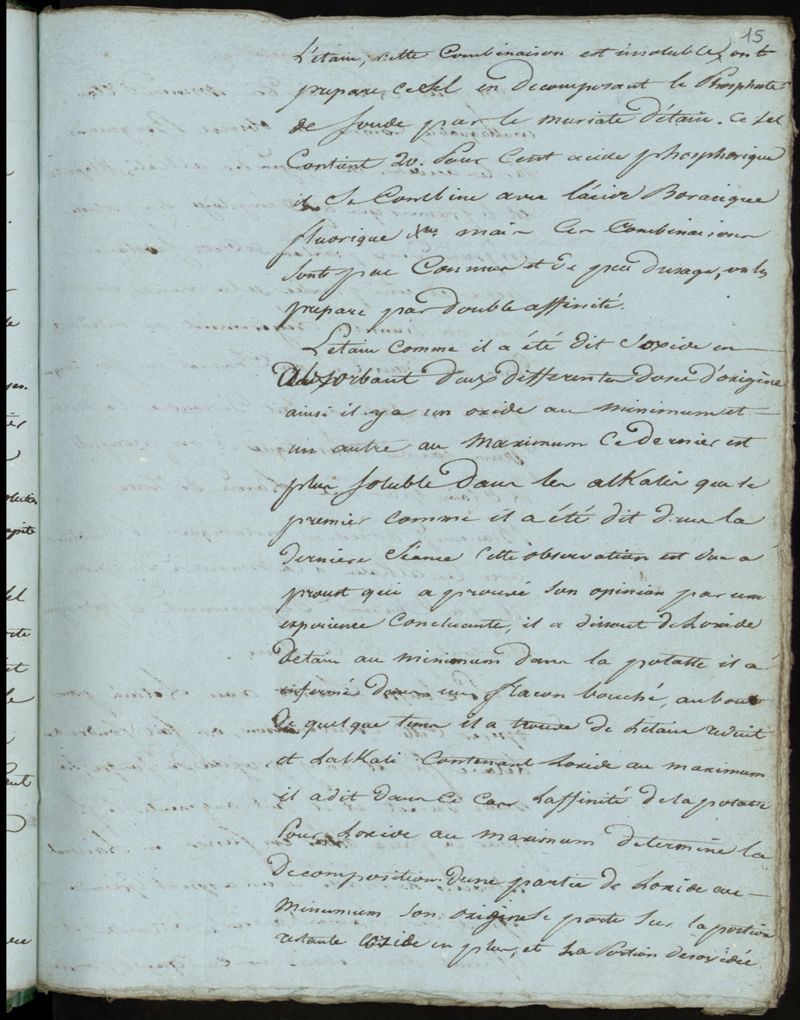 15
L'etain, cette Combinaison est insoluble, on
prepare, ce Sel en Decomposant le Phosphate
de soude par le muriate d'étain. Ce sel
Contient 20. Pour Cent acide phosphorique
il Se Combine avec l'acide Boracique
fluorique &ca mais Ces Combinaisons
Sont peu Connues et De peu Dusage, on les
prepare par double affinité.
L'etain comme il a été dit S'oxide en
Absorbant Deux differentes doses d'oxigène
ainsi il y a un oxide au minimum et
un autre au maximum Ce Dernier est
plus Soluble Dans les alkalis que le
premier comme il a été dit dans la
derniere Séance Cette observation est due a
proust qui a prouvé Son opinion par une
experience Concluante, il a dissout De Loxide
Detain au minimum dans la potasse il a
enfermé dans un flacon bouché, au bout
De quelque tems il a trouvé De Letain reduit
et Lalkali Contenant Loxide au maximum
il a dit Dans Ce Cas Laffinité de la potasse
Pour Loxide au maximum determine la
Decomposition Dune partie de Loxide au
Minimum Son oxigene Se porte Sur la portion
restante Loxide en plus, et La Portion Desoxidée